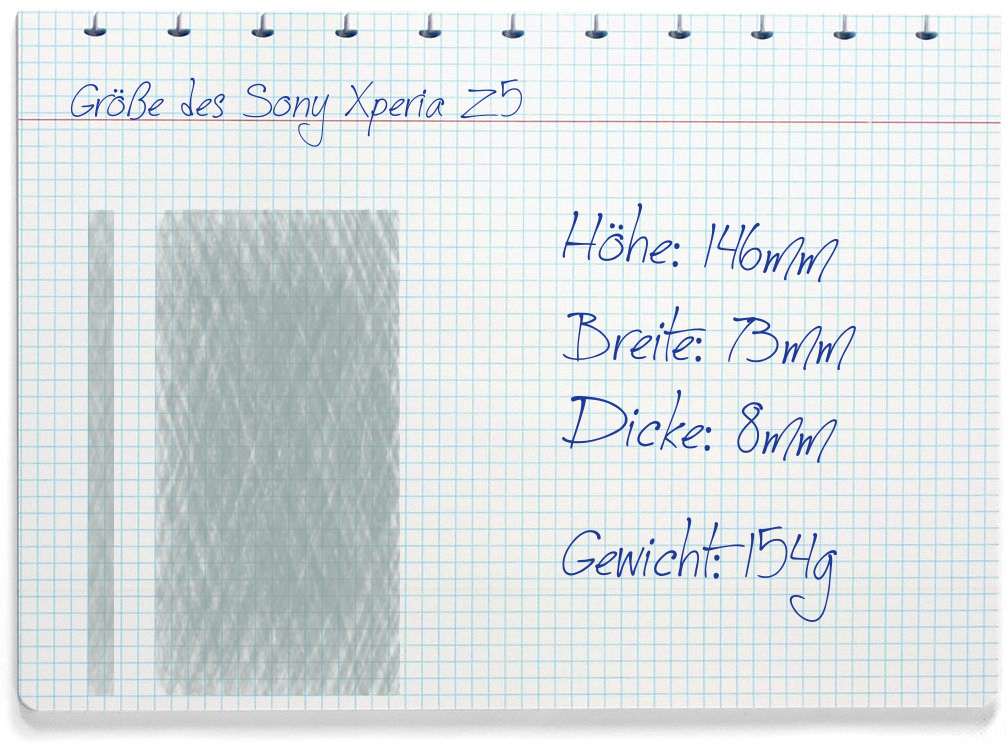 Größe des Sony Xperia Z5
Höhe: 146mm
Breite: 73mm
Dicke: 8mm
Gewicht: 154g